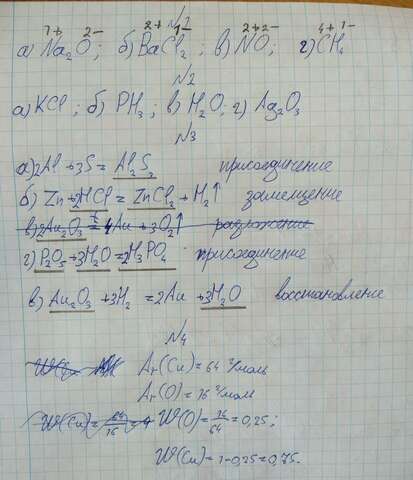 №1
1+ 2- 2+ 1- 2+ 2- 4+ 1-
а) Na₂O; б) BaCl₂; в) NO; г) CH₄
№2
а) KCl; б) PH₃; в) H₂O; г) Ag₂O₃
№3
а) 2Al + 3S = Al₂S₃ присоединение
б) Zn + 2HCl = ZnCl₂ + H₂↑ замещение
в) 2Au₂O₃ = 4Au + 3O₂↑ разложение
г) P₂O₅ + 3H₂O = 2H₃PO₄ присоединение
в) Au₂O₃ + 3H₂ = 2Au + 3H₂O восстановление
№4
Ar(Cu) = 64 г/моль
Ar(O) = 16 г/моль
W(Cu) = 64/16 = 4 W(O) = 16/64 = 0,25;
W(Cu) = 1-0,25 = 0,75.